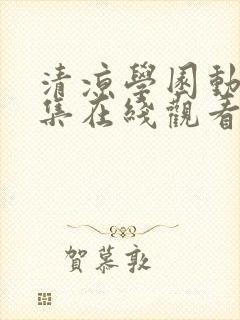 清涼學園動
集在綫觀看
賀慕敦